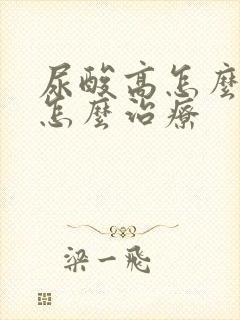 尿酸高怎麼
怎麼治療
梁一飛